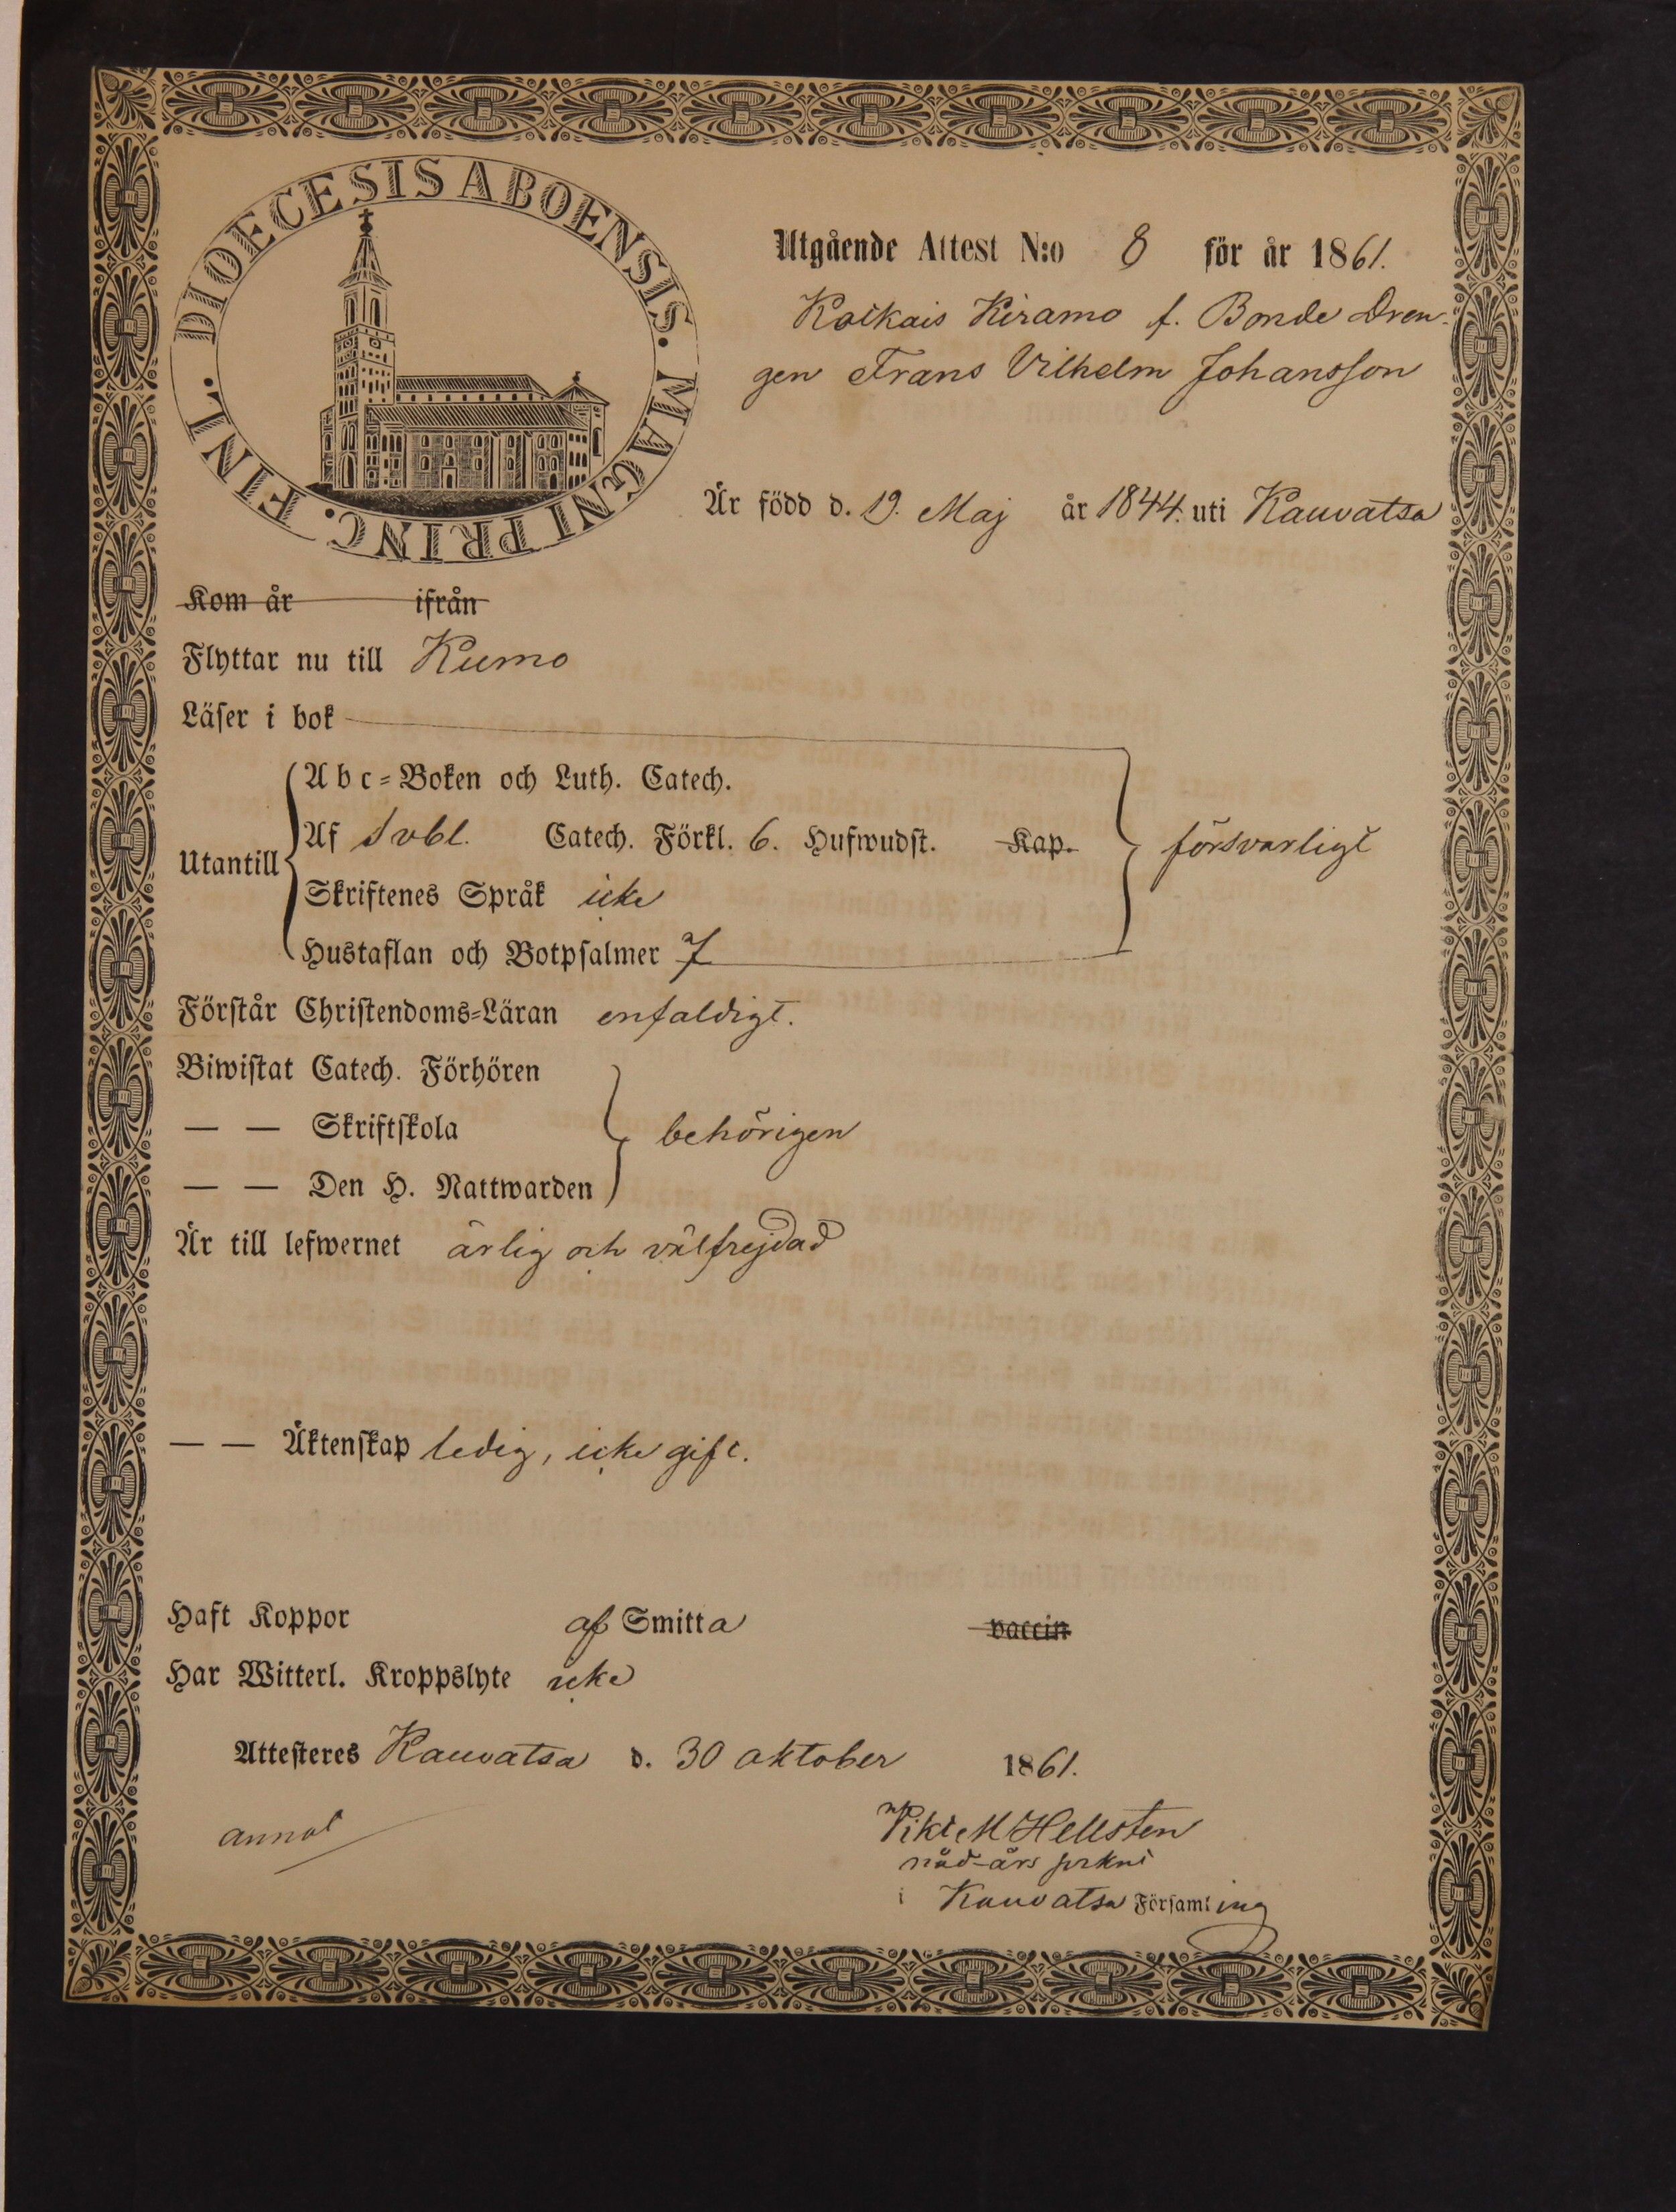 DIOECESIS ABOENSIS. MAGNI PRINC. FINL.
Utgående Attest N:o 8 för år 1861.
Kiramo f. Bonde Dren-
gen Frans Vilhelm Johansson
Är född d. 19. Maj år 1844. uti Kauvatsa
Kom år ifrån
Flyttar nu till Kumo
Läser i bok
Abc-Boken och Luth. Catech.
Af Svbl. Catech. Förkl. 6. Hufwudst. Kap. försvarligt
Utantill
Skriftenes Språk icke
Hustaflan och Botpsalmer 7
Förstår Christendoms-Läran enfaldigt.
Biwistat Catech. Förhören
— — Skriftskola behörigen
— — Den H. Nattwarden
Är till lefwernet ärlig och välfrejdad
— — Äktenskap ledig, icke gift.
Haft Koppor af Smitta vaccin
Har Witterl. Kroppslyte icke
Attesteres Kauvatsa d. 30 oktober 1861.
annot
Hellsten
i Kauvatsa Församling